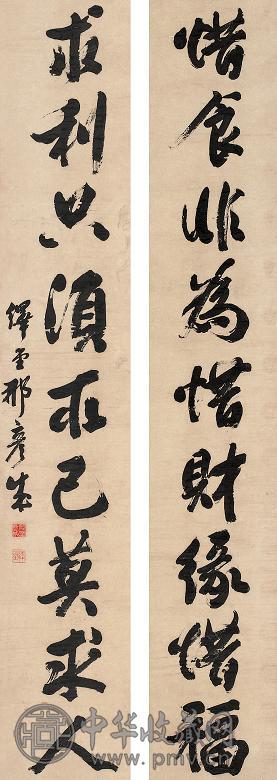 惜食非為惜財緣惜福
求利只須求己莫求人
繹堂那彥成
中华收藏网
www.pmv.cn